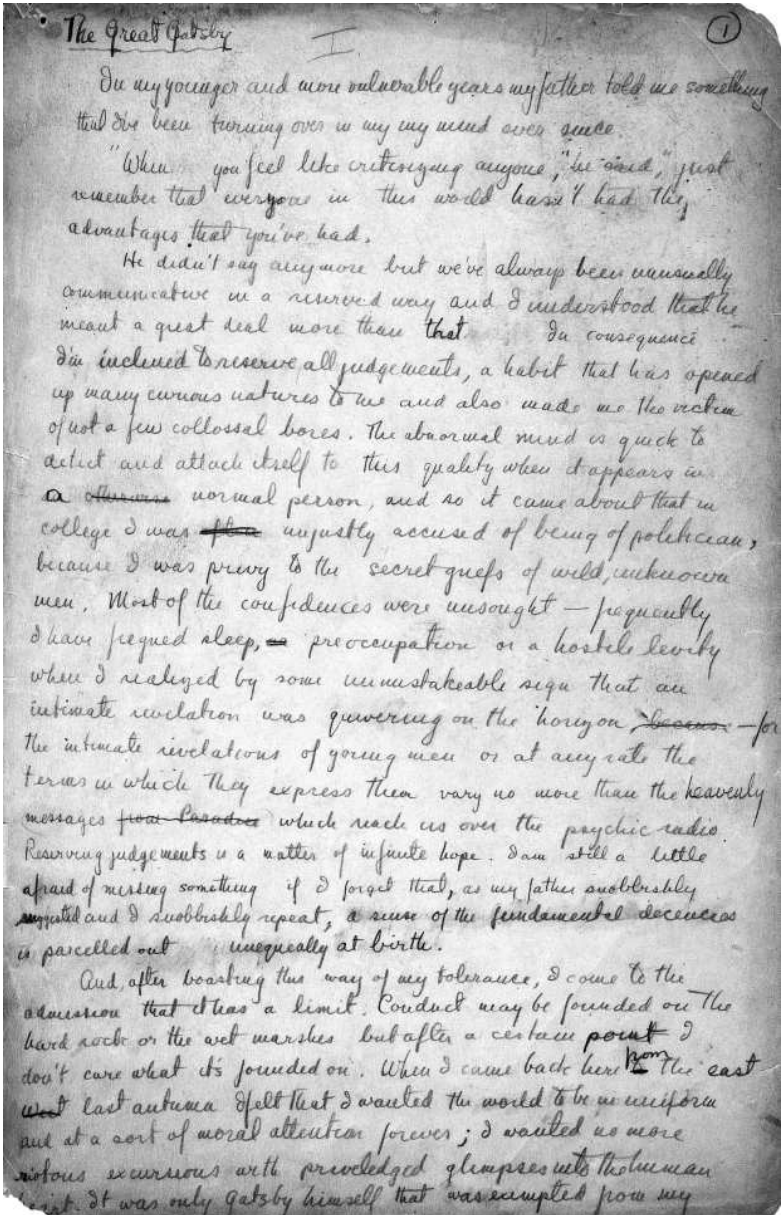 The Great Gatsby
I
1
In my younger and more vulnerable years my father told me something
that I've been turning over in my my mind ever since.
"When you feel like critisizing anyone," he said, "just
remember that everyone in this world hasn't had the
advantages that you've had.
He didn't say anymore but we've always been unusually
communicative in a reserved way and I understood that he
meant a great deal more than that In consequence
I'm inclined to reserve all judgements, a habit that has opened
up many curious natures to me and also made me the victim
of not a few collossal bores. The abnormal mind is quick to
detect and attach itself to this quality when it appears in
a otherwise normal person, and so it came about that in
college I was unjustly accused of being of politician,
because I was privy to the secret griefs of wild, unknown
men. Most of the confidences were unsought — frequently
I have fiegned sleep, preoccupation or a hostile levity
when I realized by some unmistakeable sign that an
intimate revelation was quivering on the horizon, because — for
the intimate revelations of young men or at any rate the
terms in which they express them vary no more than the heavenly
messages from Paradise which reach us over the psychic radio.
Reserving judgements is a matter of infinite hope. I am still a little
afraid of missing something if I forget that, as my father snobbishly
suggested and I snobbishly repeat, a sense of the fundamental decencies
is parcelled out unequally at birth.
And, after boasting this way of my tolerance, I come to the
admission that it has a limit. Conduct may be founded on the
hard rock or the wet marshes but after a certain point I
don't care what it's founded on. When I came back here from the east
west last autumn I felt that I wanted the world to be in uniform
and at a sort of moral attention forever; I wanted no more
riotous excursions with priviledged glimpses into the human
heart. It was only Gatsby himself that was exempted from my